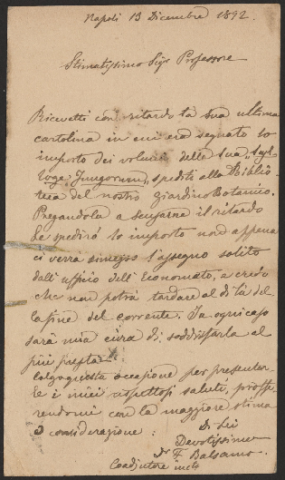 Napoli 13 Dicembre 1892.
Stimatissimo Sigr Professore
Ricevetti con ritardo la sua ultima
cartolina in cui era segnato lo
importo dei volumi della sua „Syl-
loge Fungorum„ spediti alla Biblio
teca del nostro giardino Botanico.
Pregandola a scusarne il ritardo
Le spedirò lo importo non appena
ci verrà rimesso l'assegno solito
dall'ufficio dell'Economato, e credo
che non potrà tardare al di là del
la fine del corrente. In ogni caso
sarà mia cura di soddisfarla al
più presto.
Colgo questa occasione per presentar
le i miei rispettosi saluti, proffe
rendomi con la maggiore stima
e considerazione:
Di Lei
Devotissimo
Dr F. Balsamo
Coadiutore